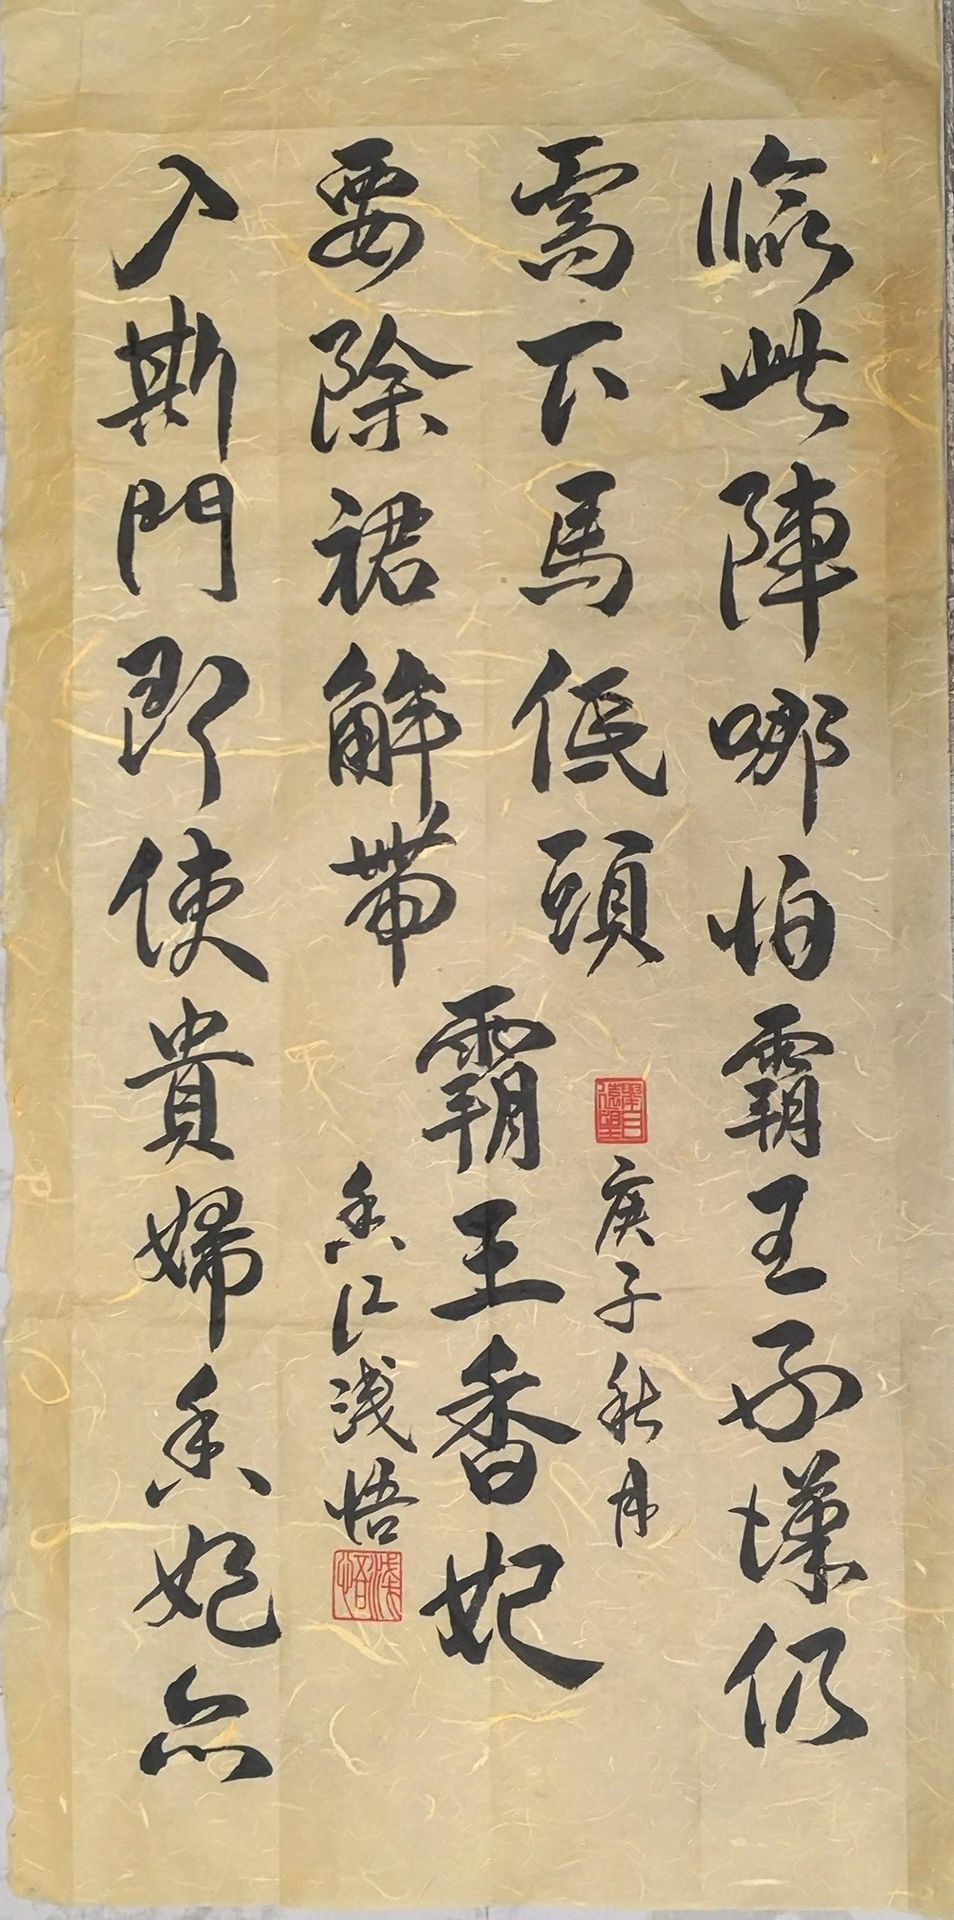 臨此陣哪怕霸王好漢仍
需下馬低頭
入斯門即使貴婦香妃亦
要除裙解帶
霸王香妃
庚子秋月
香江淺悟
淺悟